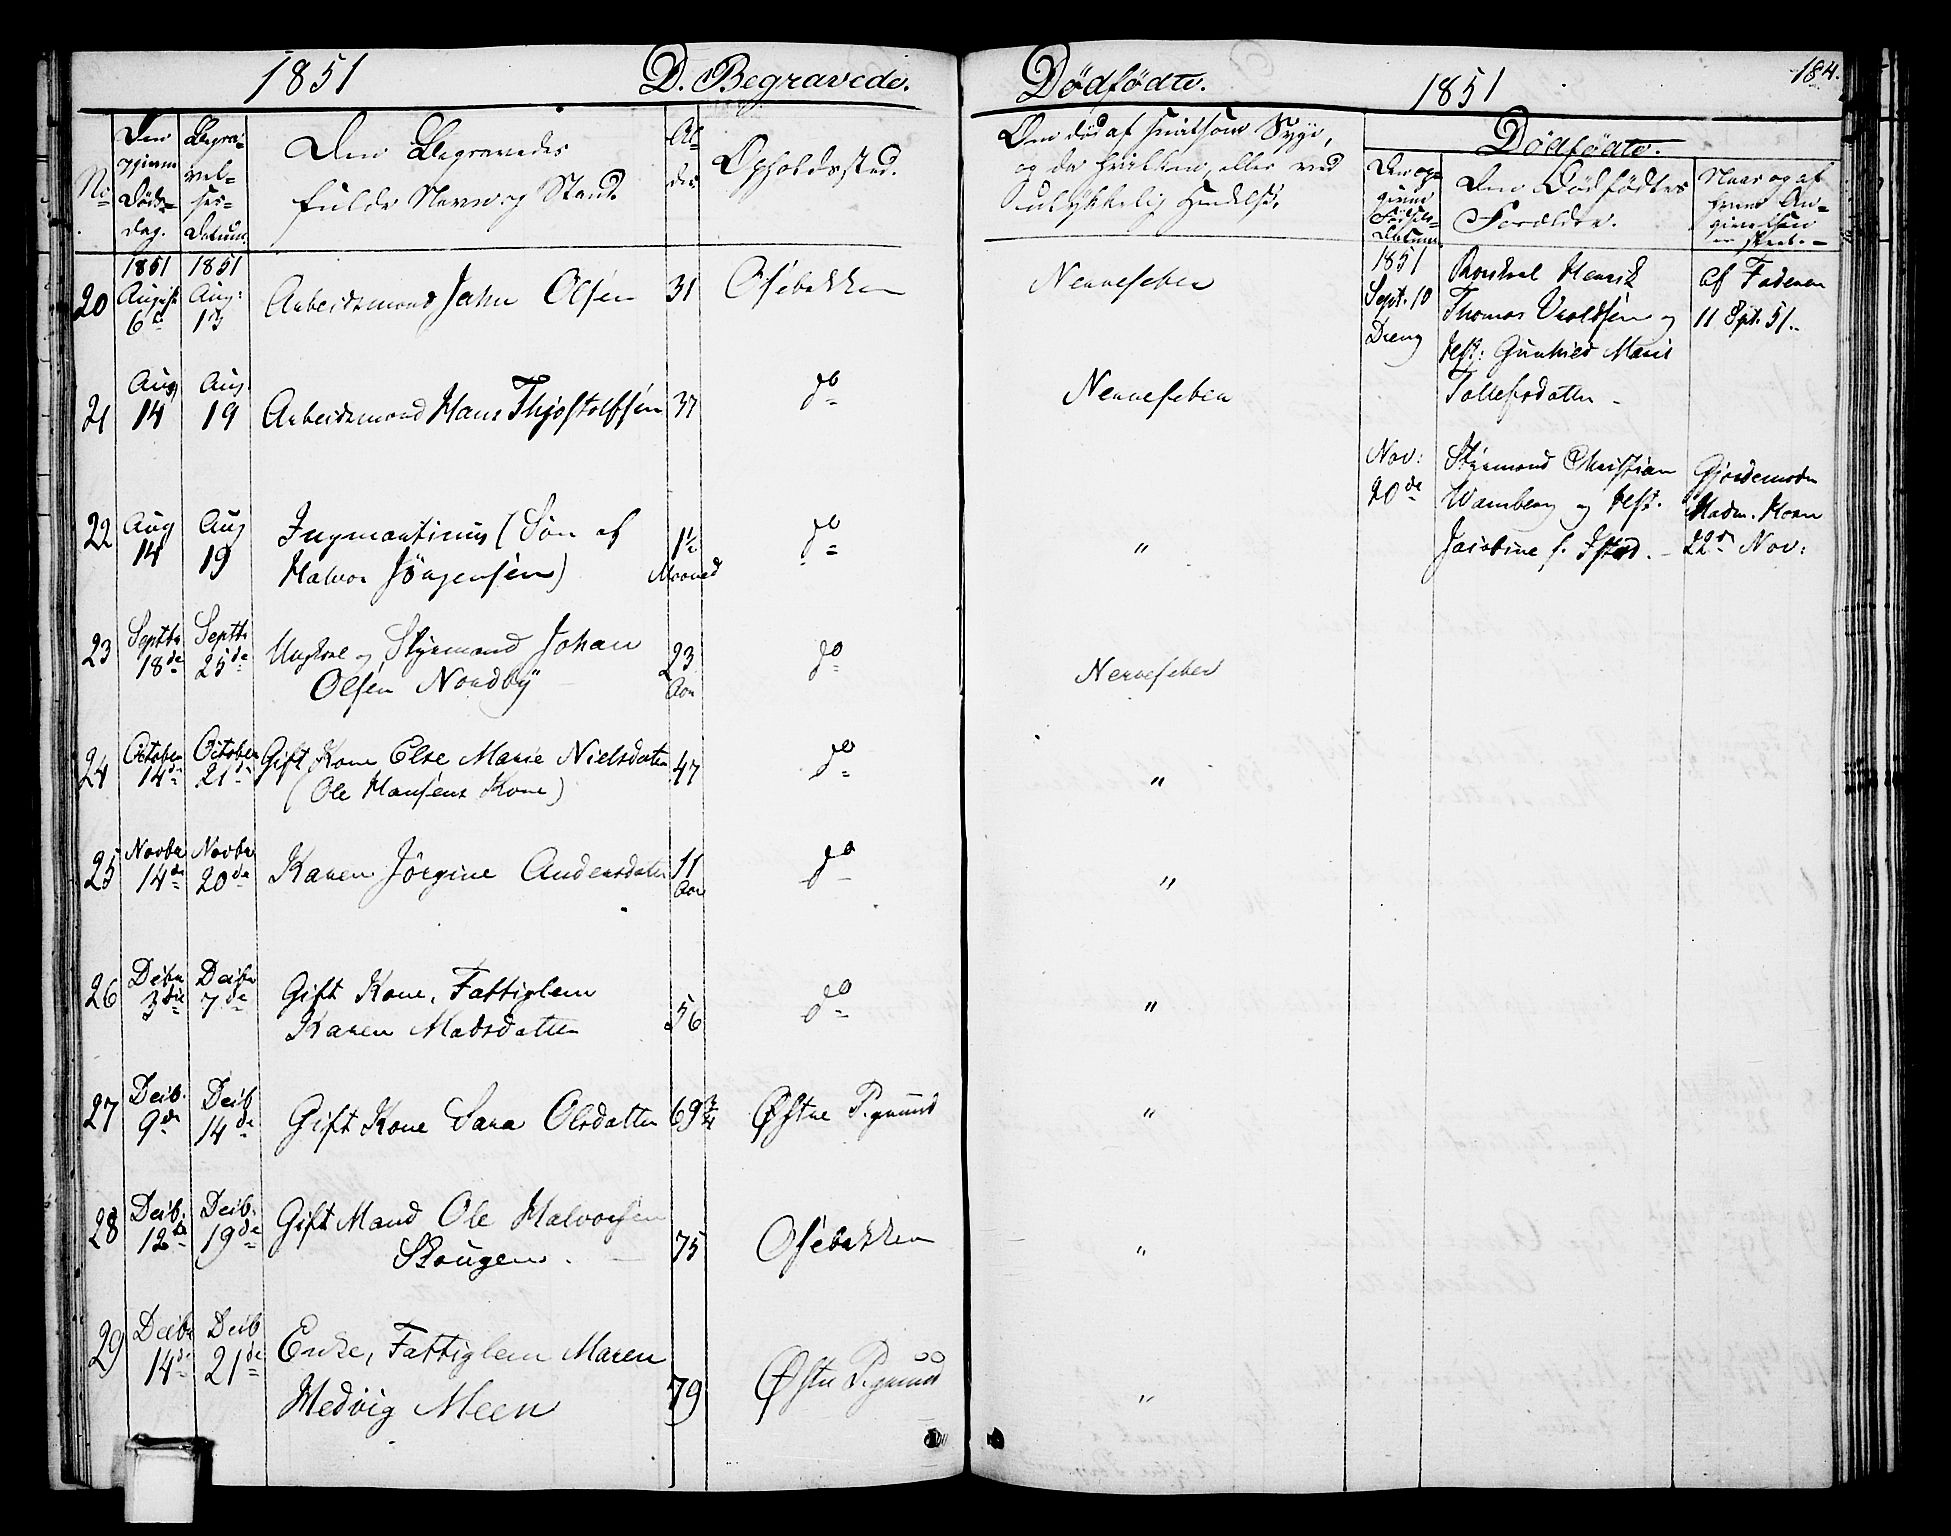 1851 D. Begravede.
No. Den opgivne Døds-dag. Begravel-ses-Datum. Den Begravedes fulde Navn og Stand. Al-der Opholdssted.
1851 1851
20 August 6te Aug: 13 Arbeidsmand Jahn Olsen 31 Osebakken
21 Aug 14 Aug. 19 Arbeidsmand Hans Thjostolfsen 37 do
22 Aug 14 Aug 19 Ingmartinius (Søn af
Halvor Jörgensen) 1½ Maaned do
23 Septbr 18de Septbr 25de Ungkarl og Styrmand Johan
Olsen Nordbÿ 23 Aar do
24 October 14de October 21de Gift Kone Else Marie Nielsdatter
(Ole Hansens Kone) 47 do
25 Novbr 14de Novbr 20de Karen Jörgine Andersdatter 11 Aar do
26 Decbr 3die Decbr 7de Gift Kone, Fattiglem
Karen Madsdatter 56 do
27 Decb. 9de Decb 14de Gift Kone Sara Olsdatter 69¾ Østre P.grund
28 Decb. 12te Decb. 19de Gift Mand Ole Halvorsen
Skougen. 75 Osebakken
29 Decbr 14de Decb 21de Enke, Fattiglem Maren
Hedvig Meen 79 Østre P.grund
Dødfødte. 1851 184.
Om død af smitsom Syge,
og da hvilken, eller ved
ulykkelig Hendelse.
Dødfødte.
Den op-givne Fødsels-Datum. Den Dødfødtes Forældre. Naar og af hvem An-givelsen er skeet.
Nervefeber
Nervefeber
"
Nervefeber
"
"
"
"
"
"
1851
Sept. 10 Dreng
Henrik
Thomas og
Hst: Marie
Tollefsdatter
af Faderen
11 Spt. 51.
Nov: 20de
Styrmand Christian
Wamberg og Hst.
Jacobine f.
Gjordemoder
Madm. Horn
22de Nov: